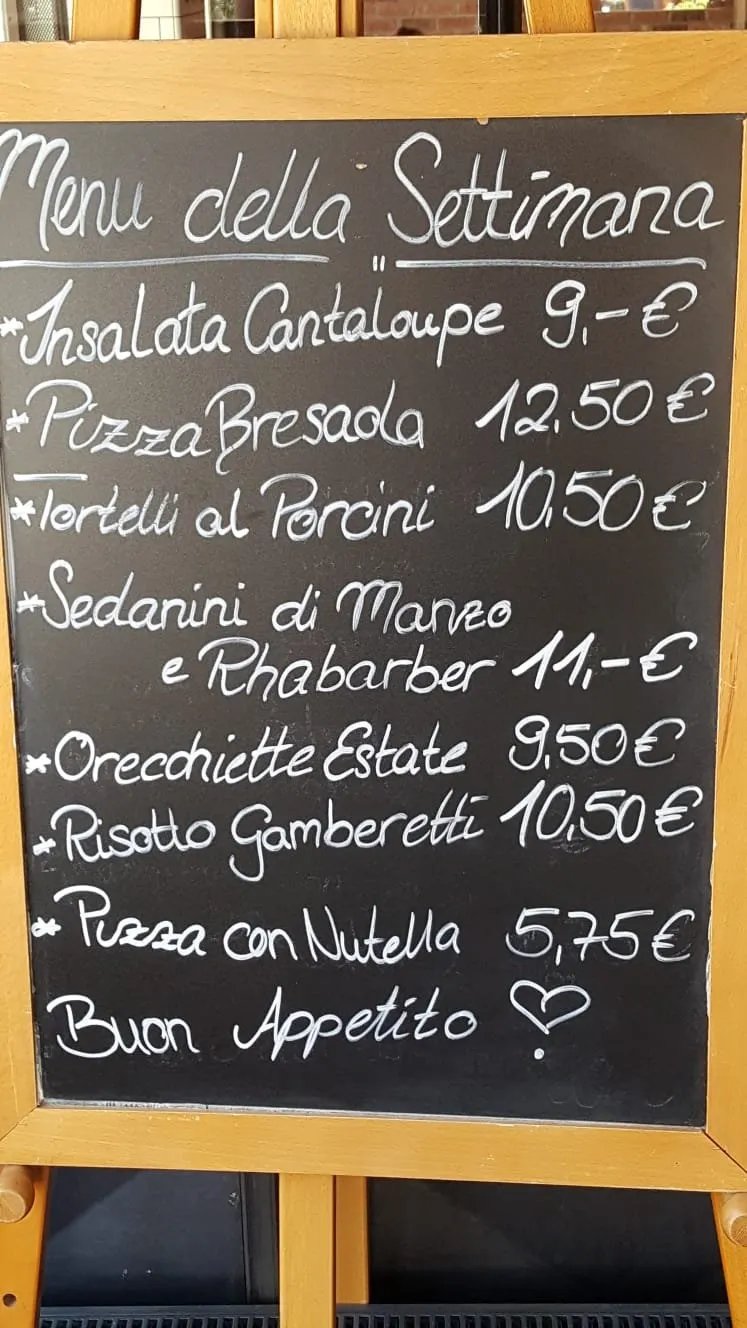 Menu della Settimana
"
*Insalata Cantaloupe 9,-€
*Pizza Bresaola 12,50€
*Tortelli al Porcini 10,50€
*Sedanini di Manzo
e Rhabarber 11,-€
*Orecchiette Estate 9,50€
*Risotto Gamberetti 10,50€
*Pizza con Nutella 5,75€
Buon Appetito